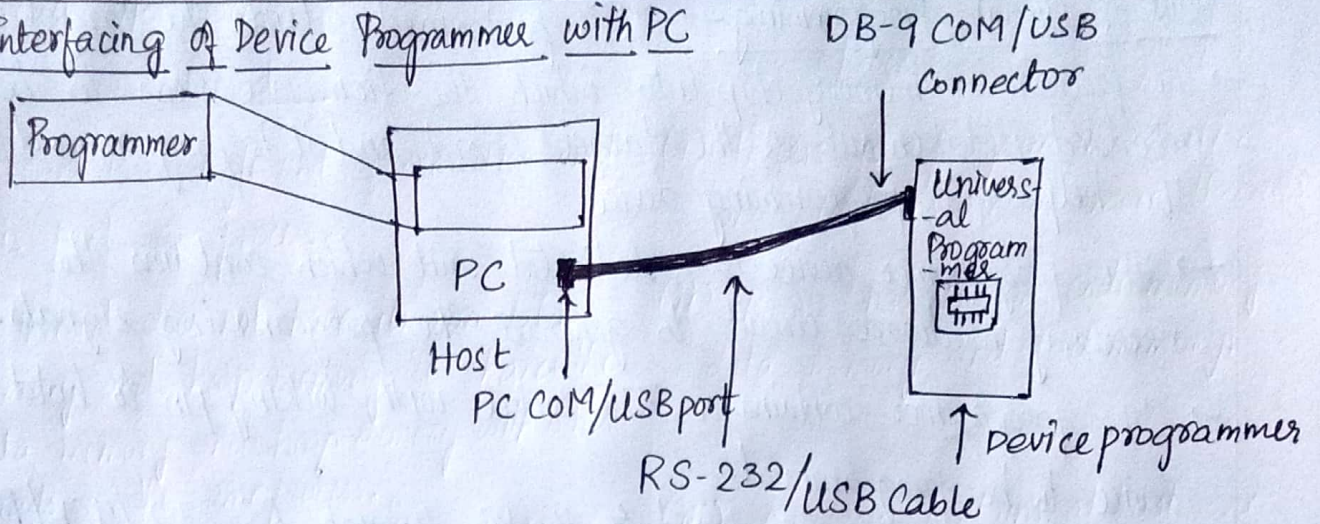 nterfacing of Device Programmer with PC
DB-9 COM/USB
Connector
Programmer
Univers-
-al
Program
-mer
PC
Host
PC COM/USB port
RS-232/USB Cable
Device programmer